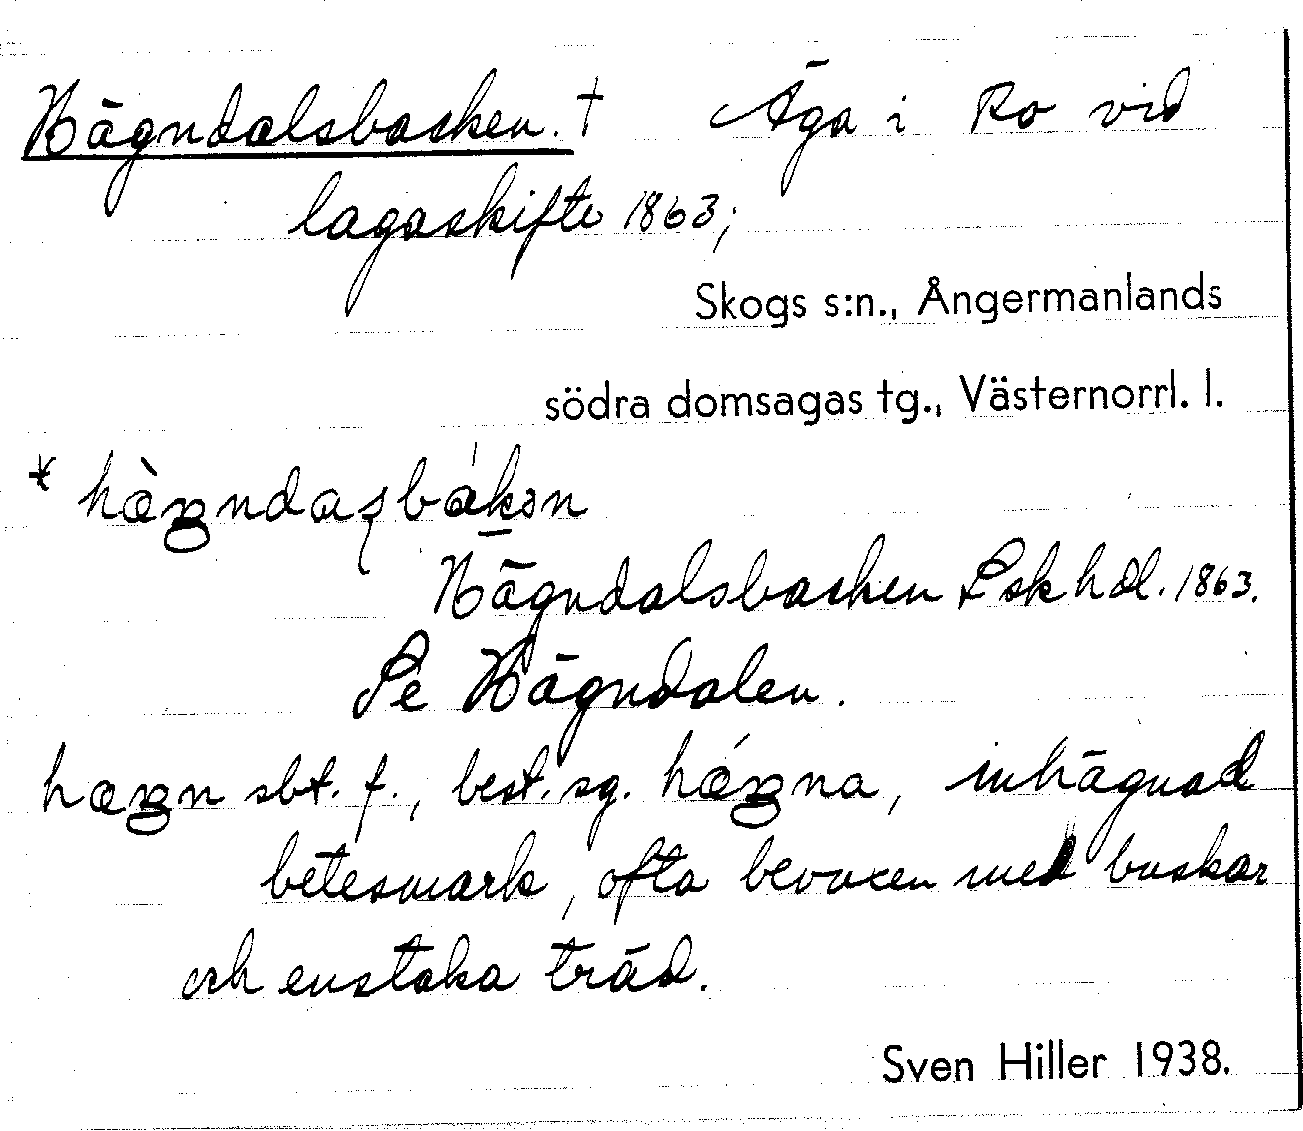 Hägndalsbacken. † Äga i Ro vid
lagaskifte 1863;
Skogs s:n., Ångermanlands
södra domsagas tg., Västernorrl. l.
* hæ̀ŋndaʂbákən
Hägndalsbacken Lskhdl. 1863.
Se Hägndalen.
hæŋn sbt. f., best. sg. hǽŋna, inhägnad
betesmark, ofta bevuxen med buskar
och enstaka träd.
Sven Hiller 1938.